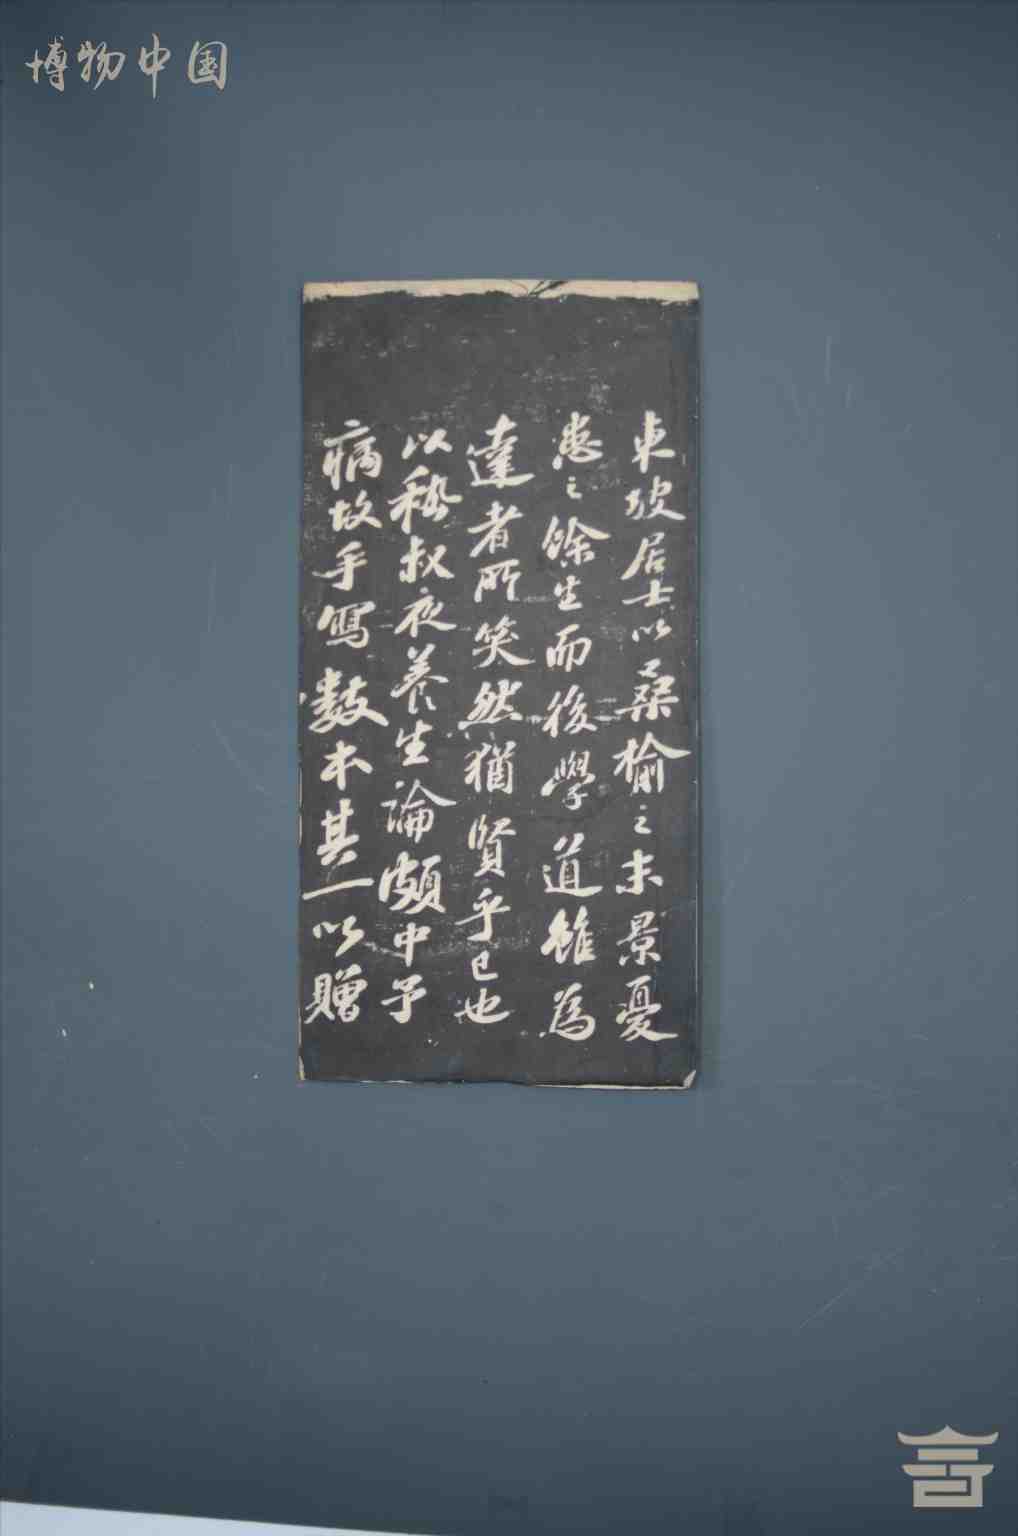 博物中国
東坡居士以桑榆之末景憂
患之餘生而後學道雖為
達者所笑然猶賢乎已也
以嵇叔夜養生論頗中予
病故手寫數本其一以贈